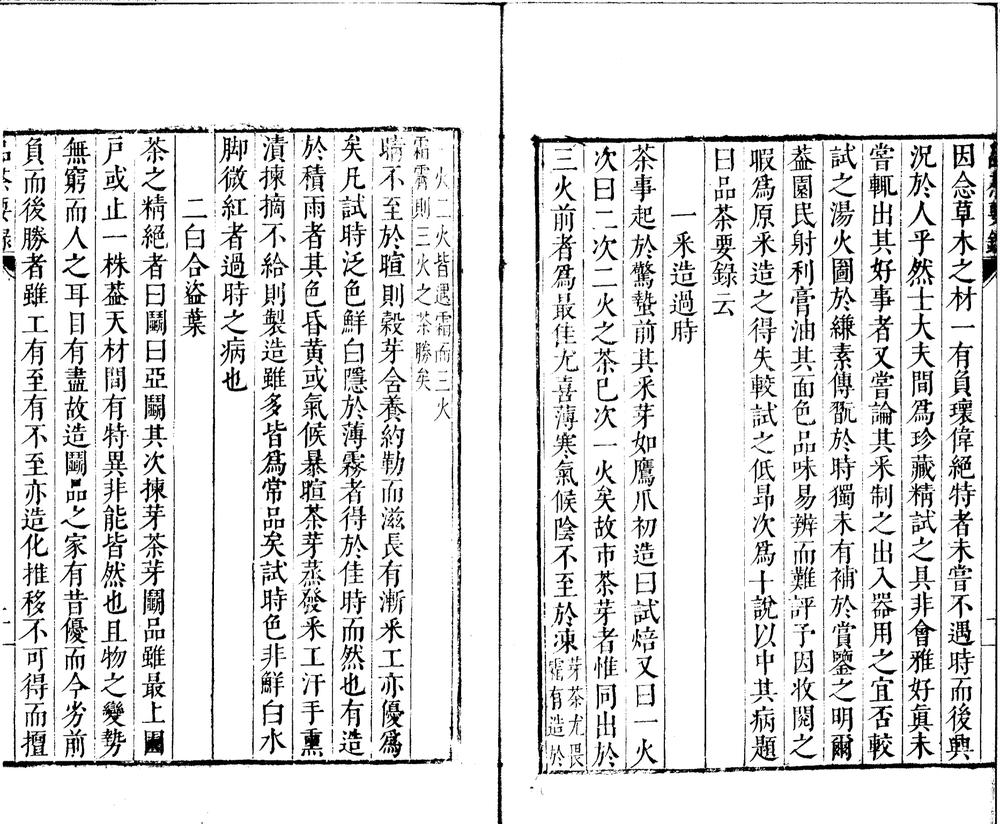 因念草木之材一有負瓌偉絕特者未嘗不遇時而後興
況於人乎然士大夫間爲珍藏精試之具非會雅好眞未
嘗輒出其好事者又嘗論其釆制之出入器用之宜否較
試之湯火圖於縑素傳翫於時獨未有補於賞鑒之明爾
葢園民射利膏油其面色品味易辨而難評予因收閱之
暇爲原釆造之得失較試之低昂次爲十說以中其病題
曰品茶要錄云
一釆造過時
茶事起於驚蟄前其釆芽如鷹爪初造曰試焙又曰一火
次曰二次二火之茶巳次一火矣故市茶芽者惟同出於
三火前者爲最佳尤喜薄寒氣候陰不至於凍芽茶尤畏
霜有造於
一火二火皆遇霜而三火
霜霽則三火之茶勝矣
晴不至於暄則穀芽含養約勒而滋長有漸釆工亦優爲
矣凡試時泛色鮮白隱於薄霧者得於佳時而然也有造
於積雨者其色昏黃或氣候暴暄茶芽蒸發釆工汗手熏
漬揀摘不給則製造雖多皆爲常品矣試時色非鮮白水
脚微紅者過時之病也
二白合盜葉
茶之精絕者曰鬬曰亞鬬其次揀芽茶芽鬬品雖最上園
戶或止一株葢天材間有特異非能皆然也且物之變勢
無窮而人之耳目有盡故造鬬品之家有昔優而今劣前
負而後勝者雖工有至有不至亦造化推移不可得而擅
品茶要錄